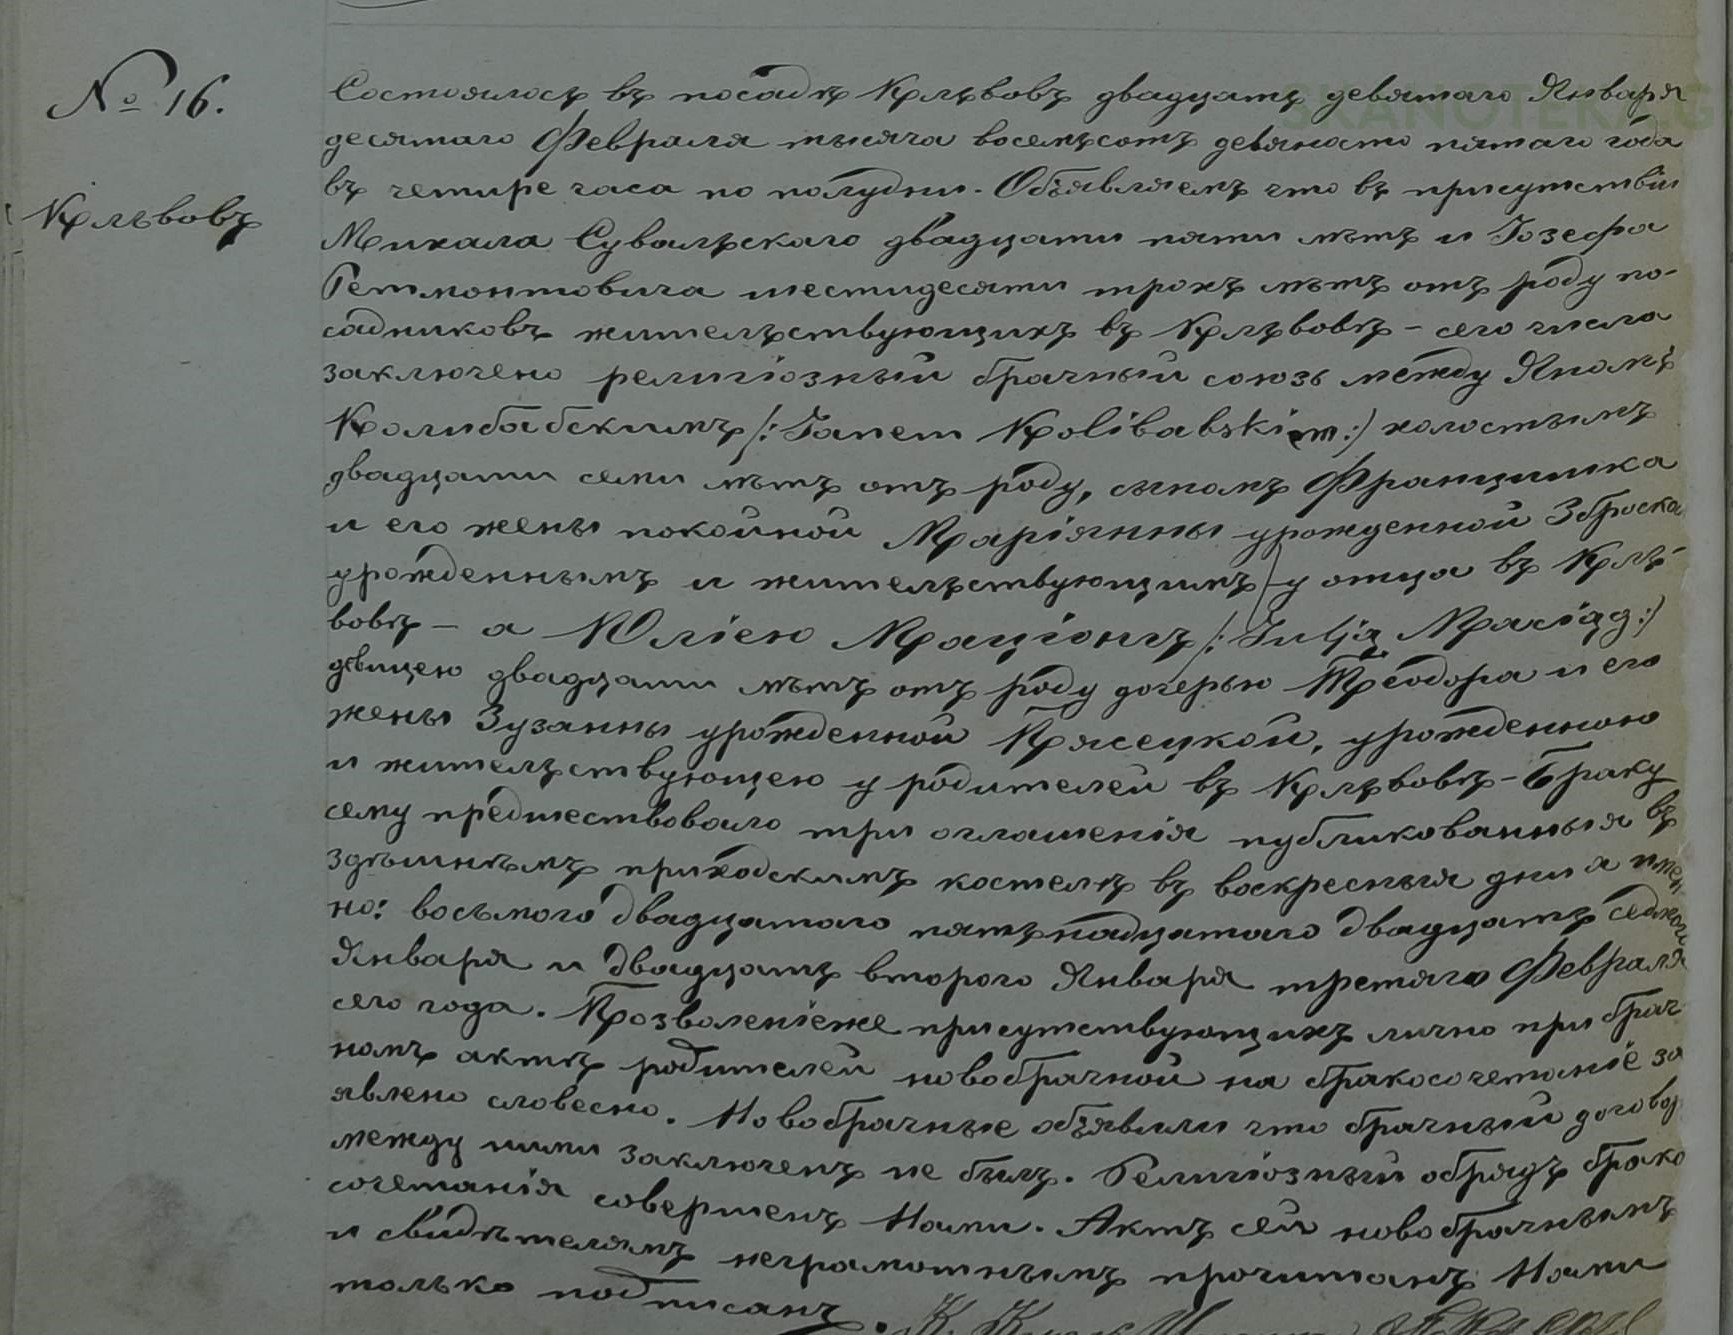 № 16.
Клѣвовъ
Состоялось въ посадѣ Клѣвовѣ двадцать девятаго Января
десятаго Февраля тысяча восемьсотъ девяносто пятаго года
въ четире часа по полудни. Объявляемъ что въ присутствіи
Михала Сувальскаго двадцати пяти лѣтъ и Іозефа
Гетмонтовича шестидесяти трохъ лѣтъ отъ роду по-
садниковъ жительствующихъ въ Клѣвовѣ – сего числа
заключено религіозный брачный союзъ между Яномъ
Колибабскимъ /: Janem Kolibabskim :/ холостымъ
двадцати семи лѣтъ отъ роду, сыномъ Францишка
и его жены покойной Маріянны урожденной Зброска
урожденнымъ и жительствующимъ у отца въ Клѣ-
вовѣ – а Юліею Маціонгъ /: Julją Maciąg :/
дѣвицею двадцати лѣтъ отъ роду дочерью Теодора и его
жены Зузанны урожденной Пясецкой, урожденною
и жительствующею у родителей въ Клѣвовѣ – Браку
сему предшествовало три оглашенія публикованныя въ
здѣшнѣмъ приходскимъ костелѣ въ воскресныя дни а имен
но: восьмого двадцатаго пятьнадцатаго двадцать седмого
Января и двадцать второго Января третяго Февраля
сего года. Позволеніеже присутствующихъ лично при брач
номъ актѣ родителей новобрачной на бракосочетаніе за
явлено словесно. Новобрачные объявили что брачный договор
между ними заключенъ не былъ. Религіозный обрядъ брако
сочетанія совершенъ Нами. Актъ сей новобрачнымъ
и свидѣтелямъ неграмотнымъ прочитанъ Нами
только подписанъ.